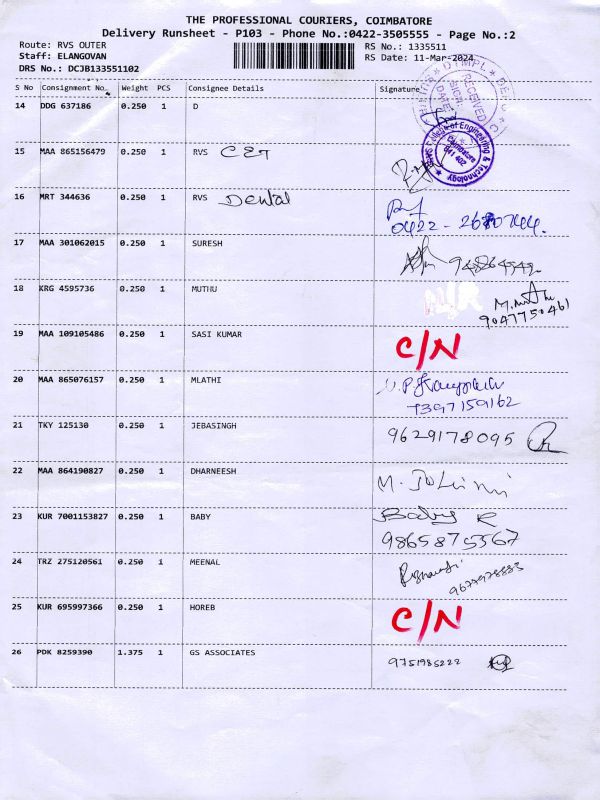 THE PROFESSIONAL COURIERS, COIMBATORE
Delivery Runsheet - P103 - Phone No.:0422-3505555 - Page No.:2
Route: RVS OUTER RS No.: 1335511
Staff: ELANGOVAN RS Date: 11-Mar-2024
DRS No.: DCJB133551102
S No Consignment No. Weight PCS Consignee Details Signature
14 DDG 637186 0.250 1 D
RECEIVED
SIGN
DATE
College of Engineering & Technology
Coimbatore
641 402
15 MAA 865156479 0.250 1 RVS CET
16 MRT 344636 0.250 1 RVS Dental
17 MAA 301062015 0.250 1 SURESH
18 KRG 4595736 0.250 1 MUTHU N/R
9047750461
19 MAA 109105486 0.250 1 SASI KUMAR C/N
20 MAA 865076157 0.250 1 MLATHI
7397159162
21 TKY 125130 0.250 1 JEBASINGH 9629178095
22 MAA 864190827 0.250 1 DHARNEESH
23 KUR 7001153827 0.250 1 BABY Baby R
9865875567
24 TRZ 275120561 0.250 1 MEENAL
25 KUR 695997366 0.250 1 HOREB C/N
26 PDK 8259390 1.375 1 GS ASSOCIATES 9751985222